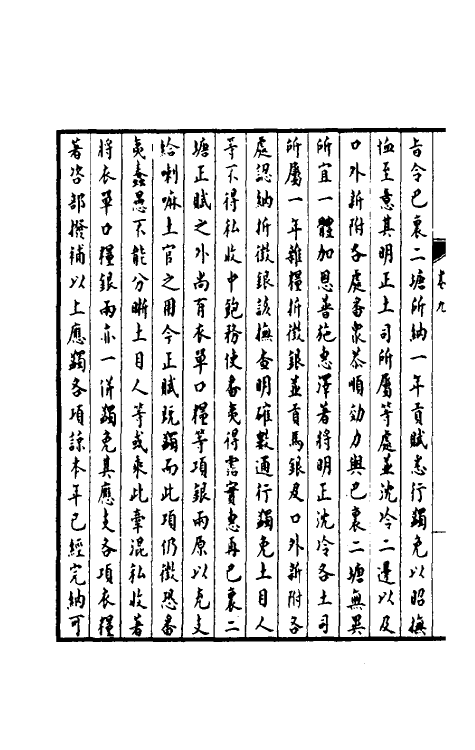 卷九
旨令巴裏二塘所納一年貢賦悉行蠲免以昭撫
恤至意其明正土司所屬等處並沈冷二邊以及
口外新附各處番衆恭順効力與巴裏二塘無異
所宜一體加恩普施惠澤著將明正沈冷各土司
所屬一年雜糧折徵銀並貢馬銀及口外新附各
處認納折徵銀該撫查明確數通行蠲免土目人
等不得私收中飽務使番夷得霑實惠再巴裏二
塘正賦之外尚有衣單口糧等項銀兩原以充支
給喇嘛土官之用今正賦既蠲而此項仍徵恐番
夷蠢愚不能分晰土目人等或乘此牽混私收著
將衣單口糧銀兩亦一併蠲免其應支各項衣糧
著咨部撥補以上應蠲各項諒本年已經完納可